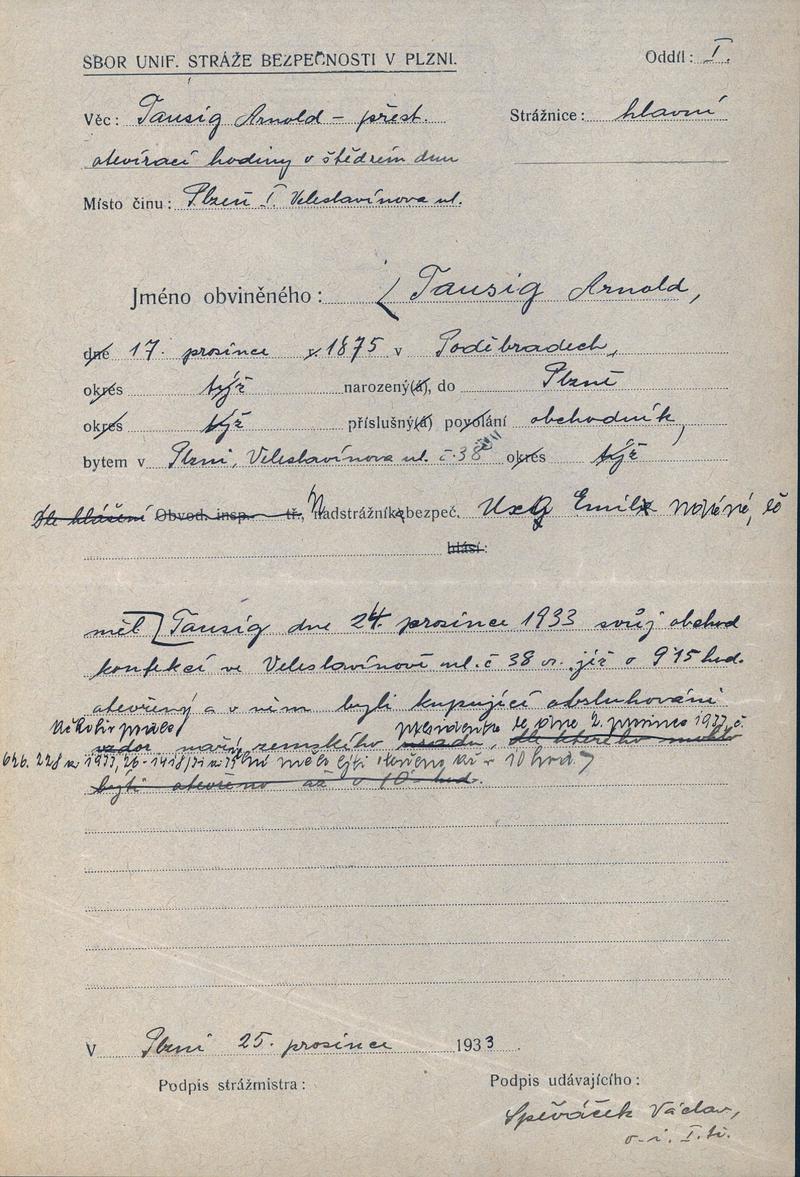 SBOR UNIF. STRÁŽE BEZPEČNOSTI V PLZNI.
Oddíl: I.
Věc: Tausig Arnold – přest.
Strážnice: hlavní
otevírací hodiny v štědrém dnu
Místo činu: Plzeň I. Veleslavínova ul.
Jméno obviněného: Tausig Arnold,
dne 17. prosince r. 1875 v Poděbradech,
okres týž narozený(á), do Plzně
okres týž příslušný(á) povolání obchodník,
bytem v Plzni, Veleslavínova ul. č. 38 okres týž
Dle hlášení Obvod. insp. tř., Nadstrážník bezpeč. Emil
hlásí:
měl Tausig dne 24. prosince 1933 svůj obchod
konfekcí ve Veleslavínově ul. č 38 již o 9'15 hod.
otevřený a v něm byli kupující obsluhováni
Ačkoliv podle
presidenta ze dne 2. prosince 1933, č.
vzdor nař. zemského úřadu, dle kterého mělo
mělo býti otevřeno až v 10 hod
býti otevřeno až v 10 hod.
V Plzni 25. prosince 1933
Podpis strážmistra:
Podpis udávajícího:
Spěváček Václav,
o. i. I. tř.